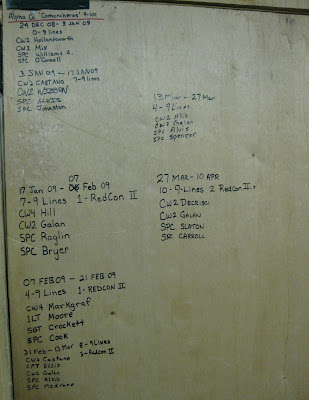 Alpha Co "Comancheros"
24 DEC 08 - 3 JAN 09
0-9 Lines
CW2 Hollandsworth
CW2 Mix
SPC Williams A.
SPC O'Connell
3 JAN 09 - 17 JAN 09
CW2 CASTANO 7-9 lines
CW2 WILSON
SPC ALVIS
SPC Johnston
13 Mar - 27 Mar
4-9 Lines
CW2 Mix
CW2 Galan
SPC Alvis
SPC Spencer
07
17 Jan 09 - Feb 09
7-9 Lines 1-RedCon II
CW4 Hill
CW2 Galan
SPC Raglin
SPC Bryer
27 MAR - 10 APR
10-9-Lines 2 RedCon II
CW2 DECRISCI
CW2 GALAN
SPC SLATON
SPC CARROLL
07 FEB 09 - 21 FEB 09
4-9 Lines 1-REDCON II
CW4 Markgraf
1LT Moore
SGT Crockett
SPC Cook
21 Feb - 13 Mar 8-9 Lines
CW2 Castano 3-Redcon II
CPT Ellis
CW2 Galan
SPC Alvis
SPC Medrano